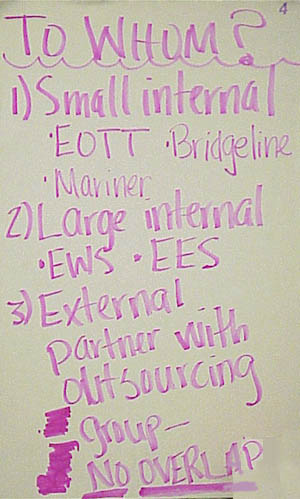 4
TO WHOM?
1) Small internal
·EOTT ·Bridgeline
·Mariner
2) Large internal
·EWS ·EES
3) External
partner with
outsourcing
group—
NO OVERLAP